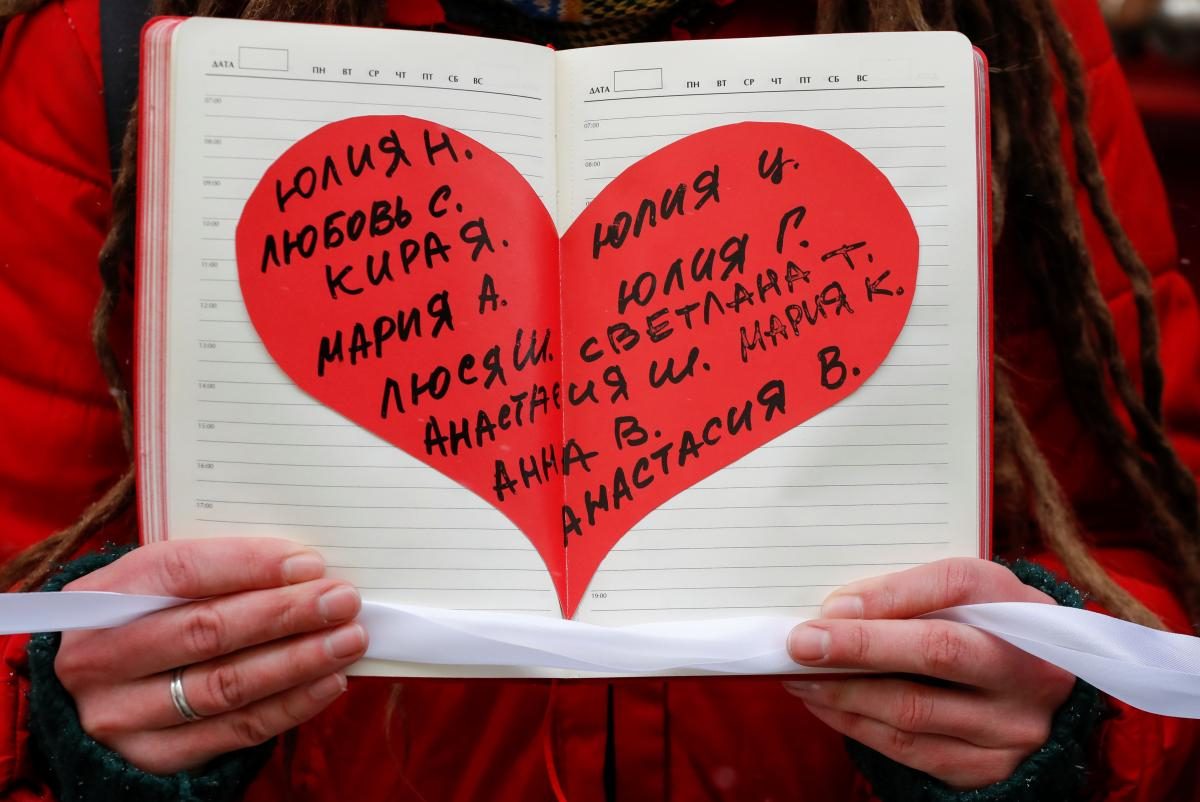 ДАТА ПН ВТ СР ЧТ ПТ СБ ВС
07:00
08:00
09:00
10:00
11:00
12:00
13:00
14:00
15:00
16:00
17:00
ЮЛИЯ Н.
ЛЮБОВЬ С.
КИРА Я.
МАРИЯ А.
ЛЮСЯ Ш.
АНАСТАСИЯ Ш.
АННА В.
ДАТА ПН ВТ СР ЧТ ПТ СБ ВС
07:00
08:00
19:00
ЮЛИЯ Ц.
ЮЛИЯ Г.
СВЕТЛАНА Т.
МАРИЯ К.
АНАСТАСИЯ В.